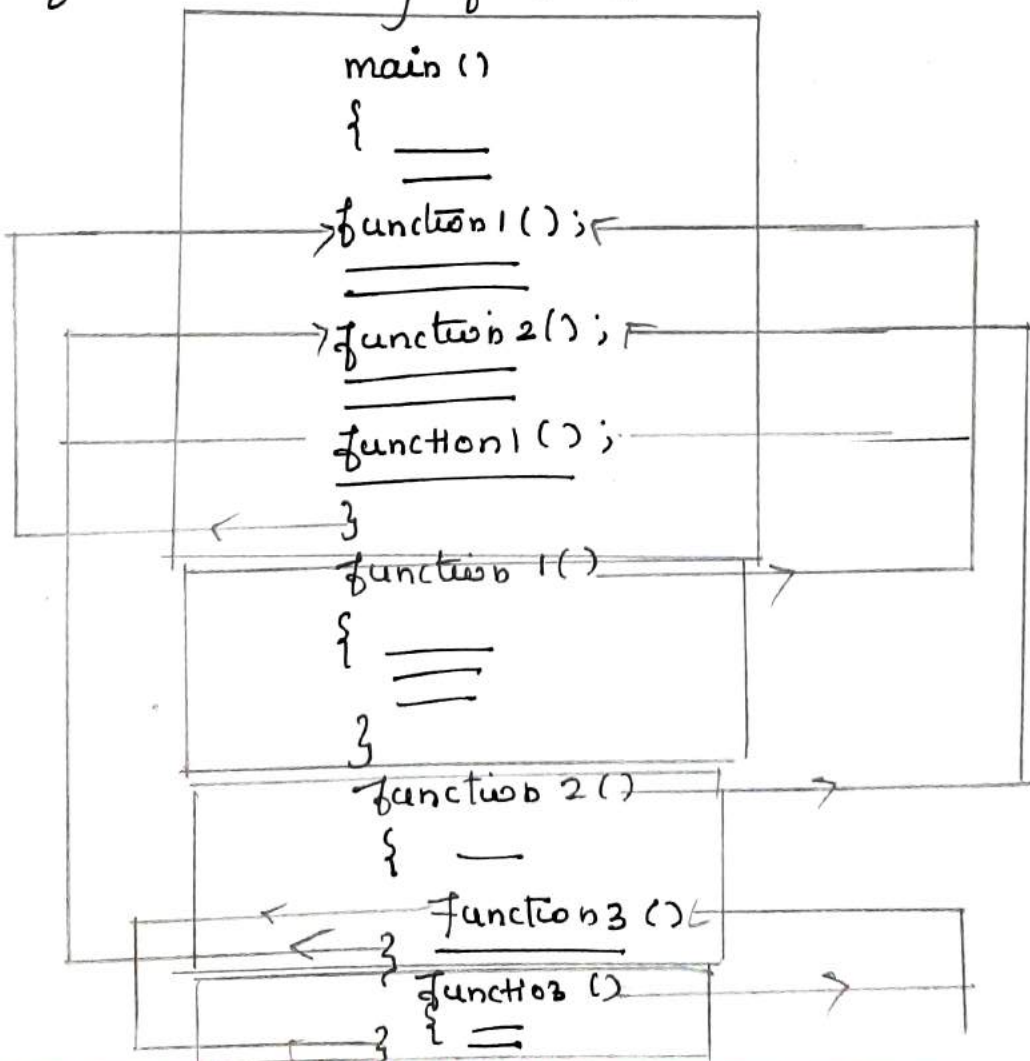 main ()
{
function1 ();
function2();
function1 ();
}
function 1()
{
}
function 2()
{
function3 ()
}
functio3 ()
{
}